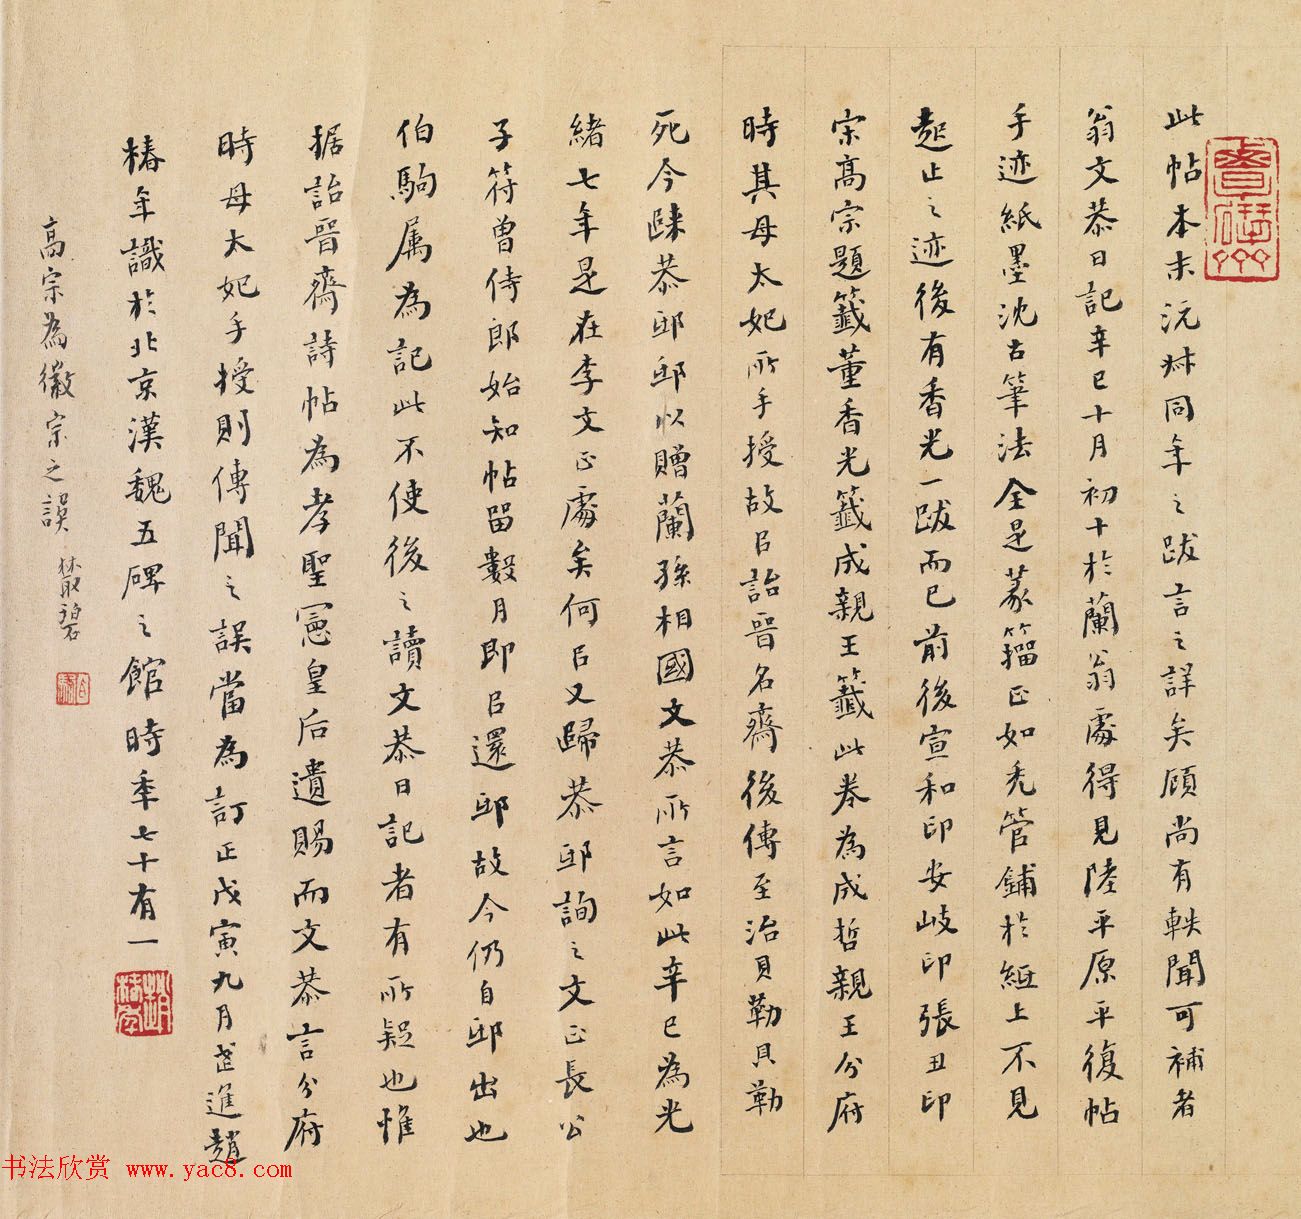 此帖本末沅叔同年之跋言之詳矣顧尚有軼聞可補者
翁文恭日記辛巳十月初十於蘭翁處得見陸平原平復帖
手迹紙墨沈古筆法全是篆籀正如禿管鋪於紙上不見
起止之迹後有香光一跋而已前後宣和印安岐印張丑印
宋高宗題籤董香光籤成親王籤此卷為成哲親王分府
時其母太妃所手授故㠯詒晉名齋後傳至治貝勒貝勒
死今歸恭邸邸以贈蘭孫相國文恭所言如此辛巳為光
緒七年是在李文正處矣何㠯又歸恭邸詢之文正長公
子符曾侍郎始知帖留數月即㠯還邸故今仍自邸出也
伯駒屬為記此不使後之讀文恭日記者有所疑也惟
据詒晉齋詩帖為孝聖憲皇后遺賜而文恭言分府
時母太妃手授則傳聞之誤當為訂正戊寅九月武進趙
椿年識於北京漢魏五碑之館時年七十有一
高宗為徽宗之誤
趙椿年
书法欣赏 www.yac8.com